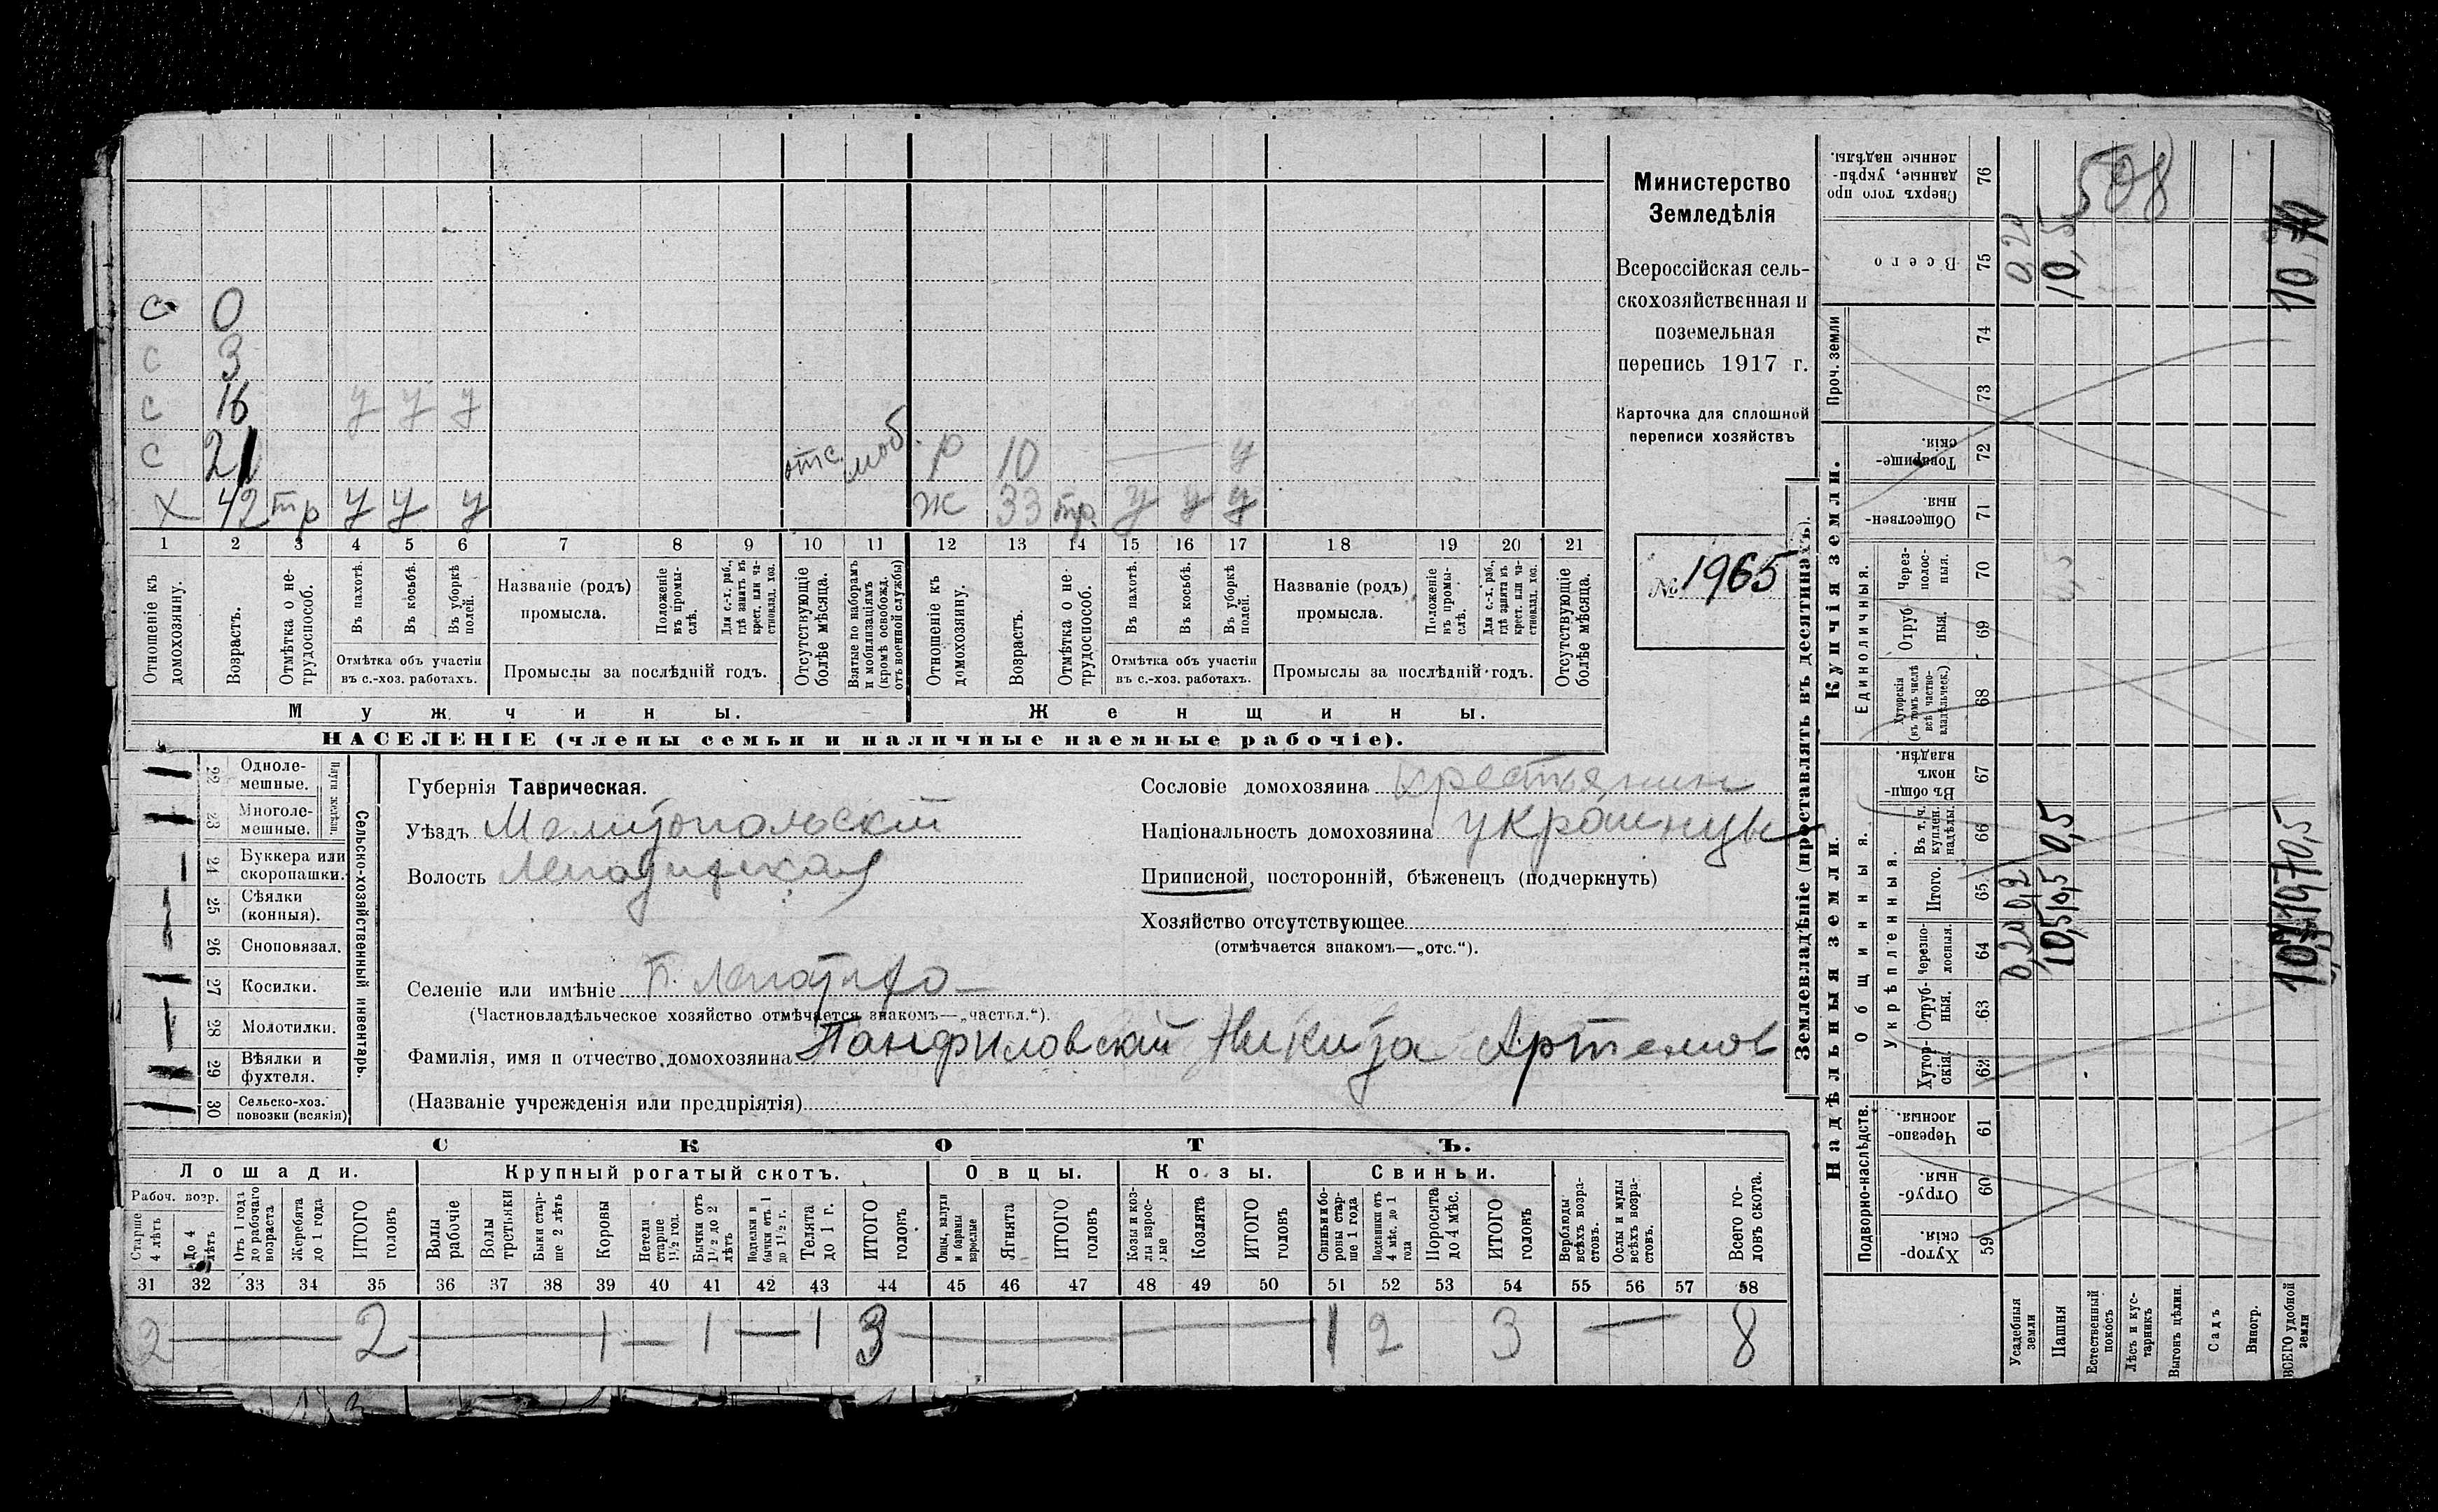 с 0
с 3
с 16 у у у
с 21 отс. моб. р 10 — у
х 42 тр у у у ж 33 тр. у у у
1 2 3 4 5 6 7 8 9 10 11 12 13 14 15 16 17 18 19 20 21
Отношеніе къ домохозяину.
Возрастъ.
Отмѣтка о не-
трудоспособ.
Въ пахотѣ.
Въ косьбѣ.
Въ уборкѣ полей.
Отмѣтка объ участіи
въ с.-хоз. работахъ.
Названіе (родъ)
промысла.
Положеніе въ промы-
слѣ.
Для с.-х. раб., гдѣ занятъ въ крест. или ча-
стновлад. хоз.
Промыслы за послѣдній годъ.
Отсутствующіе болѣе мѣсяца.
Взятые по наборамъ и мобилизаціямъ (кромѣ освобожд. отъ военной службы)
Отношеніе къ домохозяину.
Возрастъ.
Отмѣтка о не-
трудоспособ.
Въ пахотѣ.
Въ косьбѣ.
Въ уборкѣ полей.
Отмѣтка объ участіи
въ с.-хоз. работахъ.
Названіе (родъ)
промысла.
Положеніе въ промы-
слѣ.
Для с.-х. раб., гдѣ занятъ въ крест. или ча-
стновлад. хоз.
Промыслы за послѣдній годъ.
Отсутствующіе болѣе мѣсяца.
Мужчины.
Женщины.
НАСЕЛЕНІЕ (члены семьи и наличные наемные рабочіе).
Министерство
Земледѣлія
Всероссійская сель-
скохозяйственная и
поземельная
перепись 1917 г.
Карточка для сплошной
переписи хозяйствъ
№ 1965
22 Одноле-
мешные.
23 Многоле-
мешные.
Плуги желѣзн.
24 Буккера или
скоропашки.
25 Сѣялки
(конныя).
26 Сноповязал.
27 Косилки.
28 Молотилки.
29 Вѣялки и
фухтеля.
30 Сельско-хоз.
повозки (всякія)
Сельско-хозяйственный инвентарь.
Губернія Таврическая.
Уѣздъ Мелитопольскій
Волость
Селеніе или имѣніе
(Частновладѣльческое хозяйство отмѣчается знакомъ—„частвл.“).
Фамилія, имя и отчество домохозяина Панфиловскій Никита Артемов
(Названіе учрежденія или предпріятія)
Сословіе домохозяина крестянин
Національность домохозяина украинцы
Приписной, посторонній, бѣженецъ (подчеркнуть)
Хозяйство отсутствующее
(отмѣчается знакомъ—„отс.“).
СКОТЪ.
Лошади. Крупный рогатый скотъ. Овцы. Козы. Свиньи.
Рабоч. возр.
Старше 4 лѣтъ
До 4 лѣтъ
Отъ 1 года до рабочаго возраста
Жеребята до 1 года
ИТОГО головъ
Волы рабочіе
Волы третьяки
Быки стар-
ше 2 лѣтъ
Коровы
Нетели старше 1½ год.
Бычки отъ 1½ до 2 лѣтъ
Подтелки и бычки отъ 1 до 1½ г.
Телята до 1 г.
ИТОГО головъ
Овцы, валухи и бараны взрослые
Ягнята
ИТОГО головъ
Козы и коз-
лы взрос-
лые
Козлята
ИТОГО головъ
Свиньи и бо-
ровы стар-
ше 1 года
Подсвинки отъ 4 мѣс. до 1 года
Поросята до 4 мѣс.
ИТОГО головъ
Верблюды всѣхъ возра-
стовъ.
Ослы и мулы всѣхъ возра-
стовъ.
Всего го-
ловъ скота.
31 32 33 34 35 36 37 38 39 40 41 42 43 44 45 46 47 48 49 50 51 52 53 54 55 56 57 58
2 — 2 — 1 — 1 — 1 3 — 1 2 3 — 8
Землевладѣніе (проставлять въ десятинахъ).
Надѣльныя земли.
Купчія земли.
Проч. земли
Подворно-наслѣдств.
Общинныя.
Укрѣпленныя.
Единоличныя.
Хутор-
скія. 59
Отруб-
ныя. 60
Черезпо-
лосныя. 61
Хутор-
скія. 62
Отруб-
ныя. 63
Черезпо-
лосныя. 64
Итого. 65
Въ т. ч. куплен. надѣлы. 66
Въ общи-
номъ владѣн. 67
Хуторскія (въ томъ числѣ всѣ частно-
владѣльческ.) 68
Отруб-
ныя. 69
Через-
полос-
ныя. 70
Обществен-
ныя. 71
Товарище-
скія. 72
73
74
Всего 75
Сверхъ того про-
данные, укрѣп-
ленные надѣлы. 76
Усадебныя земли 0,20 0,2 0,20
Пашня 10,5 10,5 0,5 10,5
Естественный покосъ
508
Лѣсъ и кус-
тарникъ
Выгонъ цѣлин.
Садъ
Виногр.
ВСЕГО удобной земли